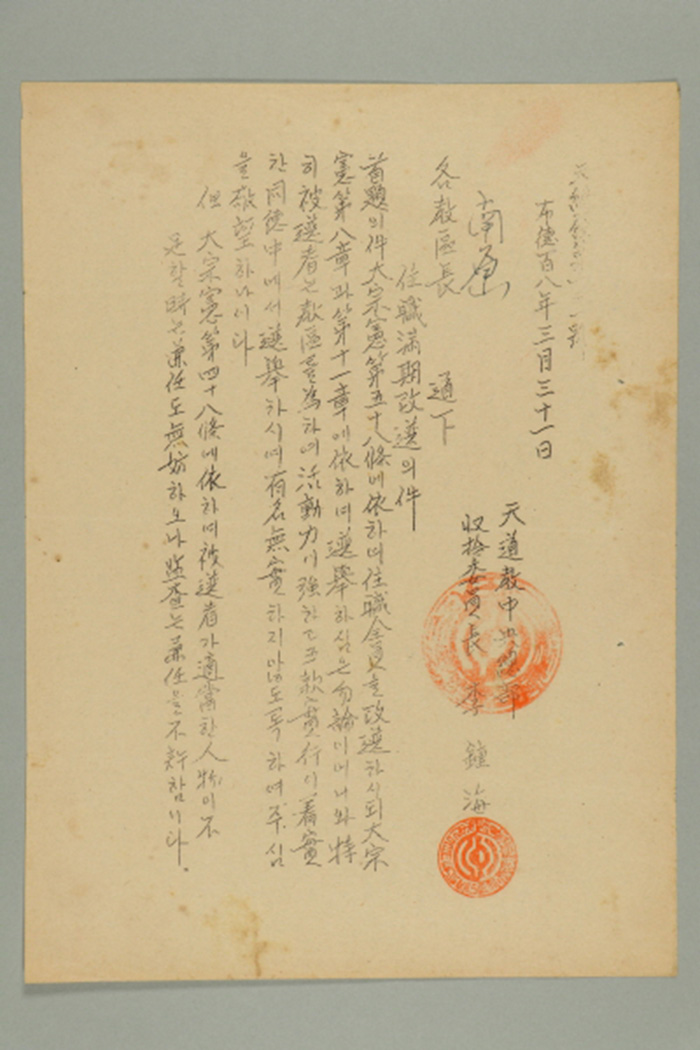 布德百八年三月三十一日
天道教中央總部
収拾委員長 李鍾海
南原
各教區長 通下
任職滿期改選의件
首題의件 大宗憲第五十八條에依하여任職全員을改選하시되大宗
憲第八章과第十一章에依하여選擧하심은勿論이어니와特
히被選者는教區를為하여活動力이強하고教人實行이着實
한同德中에서選擧하시여有名無實하지않도록하여주심
을敬望하나이다
但 大宗憲第四十八條에依하여被選者가適當한人物이不
足할時는兼任도無妨하오나監査는兼任을不許합니다.